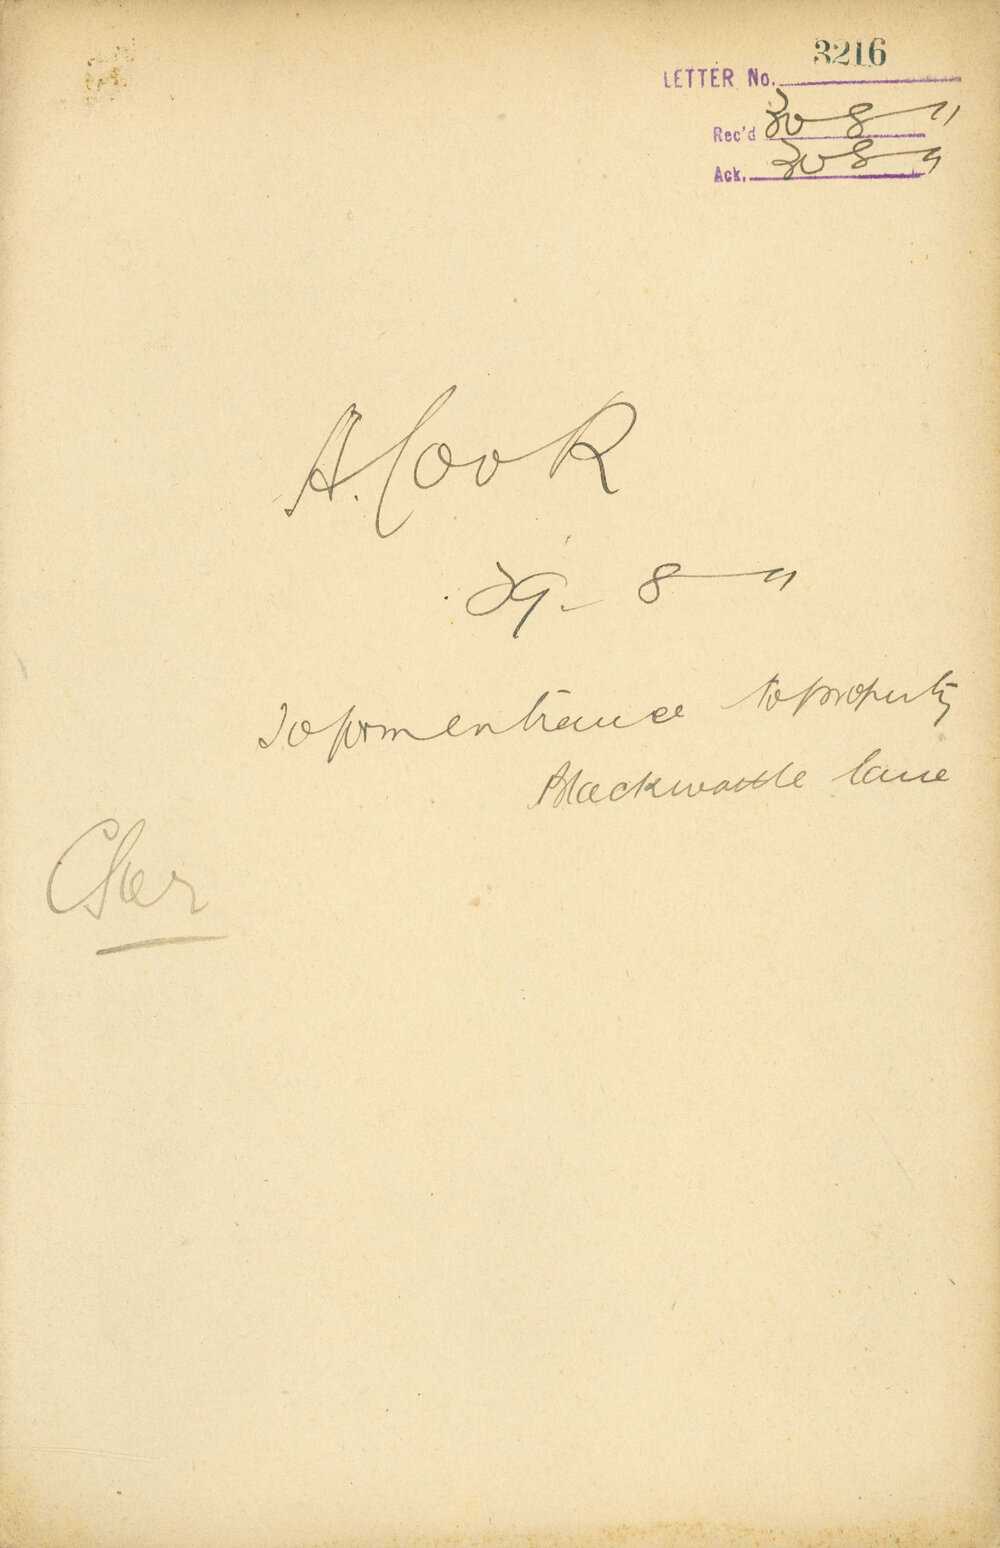 LETTER No. 3216
Rec'd 30 8 11
Ack. 30 8 11
A. Cook
29 - 8 - 11
To form entrance to property
Blackwattle lane